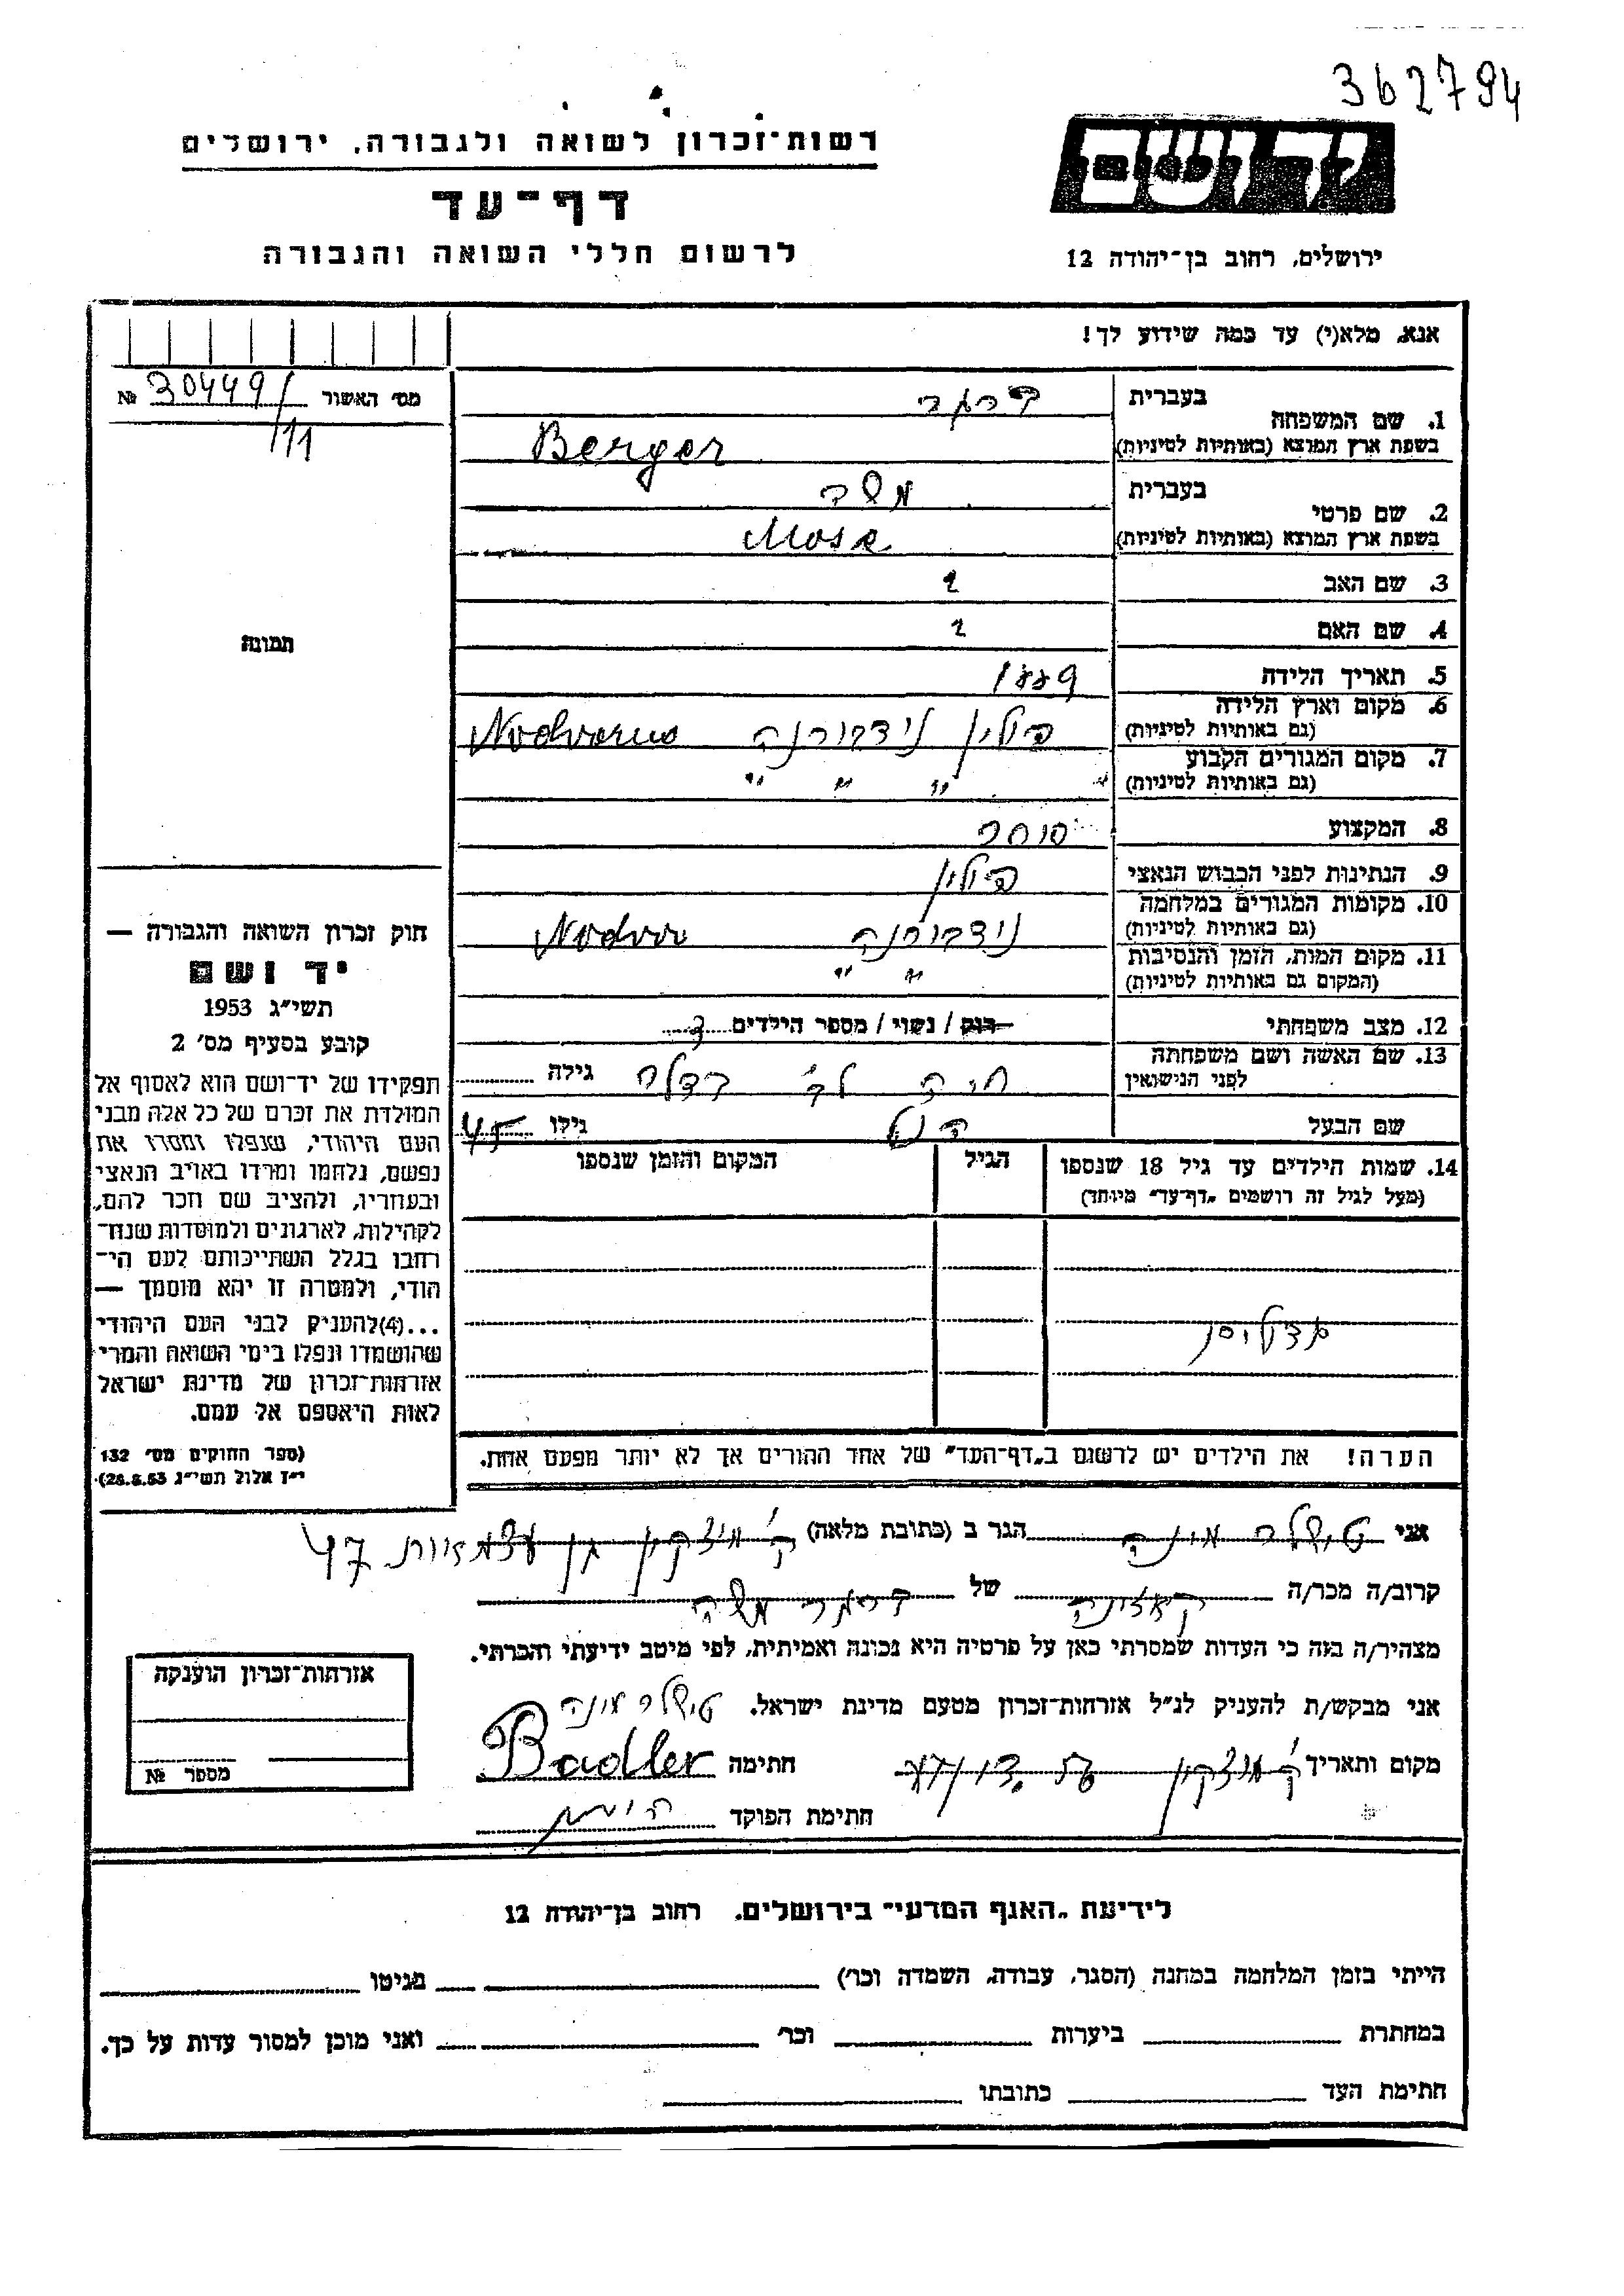 362794
יד ושם
רשות־זכרון לשואה ולגבורה, ירושלים
דף־עד
לרשום חללי השואה והגבורה
ירושלים, רחוב בן־יהודה 12
אנא, מלא(י) עד כמה שידוע לך!
מס׳ האשור № 30449/
1. שם המשפחה בעברית ברגר
בשפת ארץ המוצא (באותיות לטיניות) Berger
2. שם פרטי בעברית משה
בשפת ארץ המוצא (באותיות לטיניות) Mose
3. שם האב ?
4. שם האם ?
5. תאריך הלידה 1889
6. מקום וארץ הלידה (גם באותיות לטיניות) פולין נידבורנה
7. מקום המגורים הקבוע (גם באותיות לטיניות) " " "
8. המקצוע סוחר
9. הנתינות לפני הכבוש הנאצי פולין
10. מקומות המגורים במלחמה (גם באותיות לטיניות) נידבורנה
11. מקום המות, הזמן והנסיבות (המקום גם באותיות לטיניות) " "
12. מצב משפחתי רווק / נשוי / מספר הילדים
13. שם האשה ושם משפחתה לפני הנישואין חיה לב׳ בדלר גילה
שם הבעל גילו 45
14. שמות הילדים עד גיל 18 שנספו הגיל המקום והזמן שנספו
(מעל לגיל זה רושמים „דף־עד" מיוחד)
הערה! את הילדים יש לרשום ב„דף־העד" של אחד ההורים אך לא יותר מפעם אחת.
תמונה
חוק זכרון השואה והגבורה —
יד ושם
תשי״ג 1953
קובע בסעיף מס׳ 2
תפקידו של יד־ושם הוא לאסוף אל
המולדת את זכרם של כל אלה מבני
העם היהודי, שנפלו ומסרו את
נפשם, נלחמו ומרדו באויב הנאצי
ובעוזריו, ולהציב שם וזכר להם,
לקהילות, לארגונים ולמוסדות שנח־
רבו בגלל השתייכותם לעם הי־
הודי, ולמטרה זו יהא מוסמך —
...(4)להעניק לבני העם היהודי
שהושמדו ונפלו בימי השואה והמרי
אזרחות־זכרון של מדינת ישראל
לאות היאספם אל עמם.
(ספר החוקים מס׳ 132
י״ז אלול תשי״ג 28.8.53)
אני טישלר מונה הגר ב (כתובת מלאה) ק׳ מוצקין גן עצמאות 47
קרוב/ה מכר/ה של ברגר משה
מצהיר/ה בזה כי העדות שמסרתי כאן על פרטיה היא נכונה ואמיתית, לפי מיטב ידיעתי והכרתי.
אני מבקש/ת להעניק לנ״ל אזרחות־זכרון מטעם מדינת ישראל. טישלר מונה
מקום ותאריך ק׳ מוצקין חתימה Badler
חתימת הפוקד
אזרחות־זכרון הוענקה
מספר №
לידיעת „האגף המדעי" בירושלים, רחוב בן־יהודה 12
הייתי בזמן המלחמה במחנה (הסגר, עבודה, השמדה וכו׳) בגיטו
במחתרת ביערות וכו׳ ואני מוכן למסור עדות על כך.
חתימת העד כתובתו